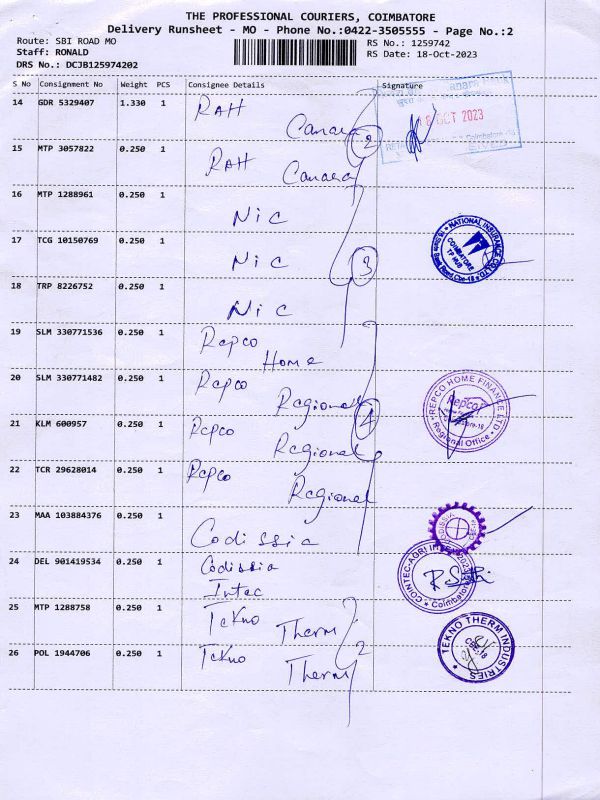 THE PROFESSIONAL COURIERS, COIMBATORE
Delivery Runsheet - MO - Phone No.:0422-3505555 - Page No.:2
Route: SBI ROAD MO
RS No.: 1259742
Staff: RONALD
RS Date: 18-Oct-2023
DRS No.: DCJB125974202
S No Consignment No Weight PCS Consignee Details Signature
14 GDR 5329407 1.330 1 RAH Canara
OCT 2023
2
15 MTP 3057822 0.250 1 RAH Canara
16 MTP 1288961 0.250 1 Nic
17 TCG 10150769 0.250 1 Nic
3
NATIONAL INSURANCE CO LTD
COIMBATORE
TP HUB
18 TRP 8226752 0.250 1 Nic
19 SLM 330771536 0.250 1 Repco Home
20 SLM 330771482 0.250 1 Repco Regional
4
REPCO HOME FINANCE LTD
Repco
Regional Office
21 KLM 600957 0.250 1 Repco Regional
22 TCR 29628014 0.250 1 Repco Regional
23 MAA 103884376 0.250 1 Codissia
24 DEL 901419534 0.250 1 Codissia Intec
Coimbatore
25 MTP 1288758 0.250 1 Tekno Therm
2
TEKNO THERM INDUSTRIES
CBE-18
26 POL 1944706 0.250 1 Tekno Therm